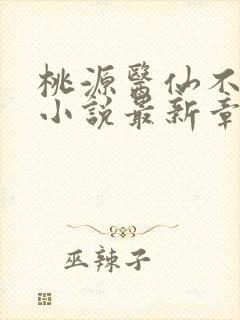 桃源醫仙不
小說最新章
巫辣子